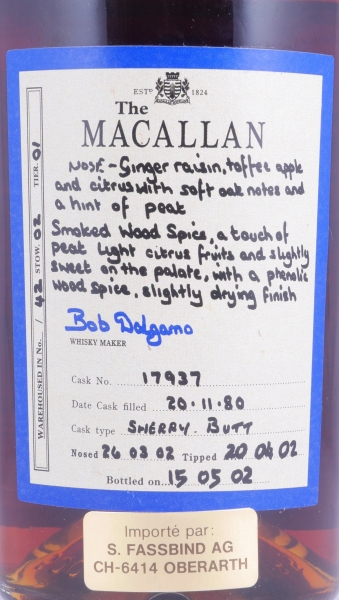 ESTD 1824
The
MACALLAN
NOSE - Ginger raisin, toffee apple
and citrus with soft oak notes and
a hint of peat
Smoked Wood Spice, a touch of
peat light citrus fruits and slightly
sweet on the palate, with a phenolic
wood spice, slightly drying finish
Bob Dalgarno
WHISKY MAKER
Cask No. 17937
Date Cask filled 20.11.80
Cask type SHERRY BUTT
Nosed 26 03 02 Tipped 20 04 02
Bottled on 15 05 02
WAREHOUSED IN No. / 42 STOW. 02 TIER. 01
Importé par:
S. FASSBIND AG
CH-6414 OBERARTH